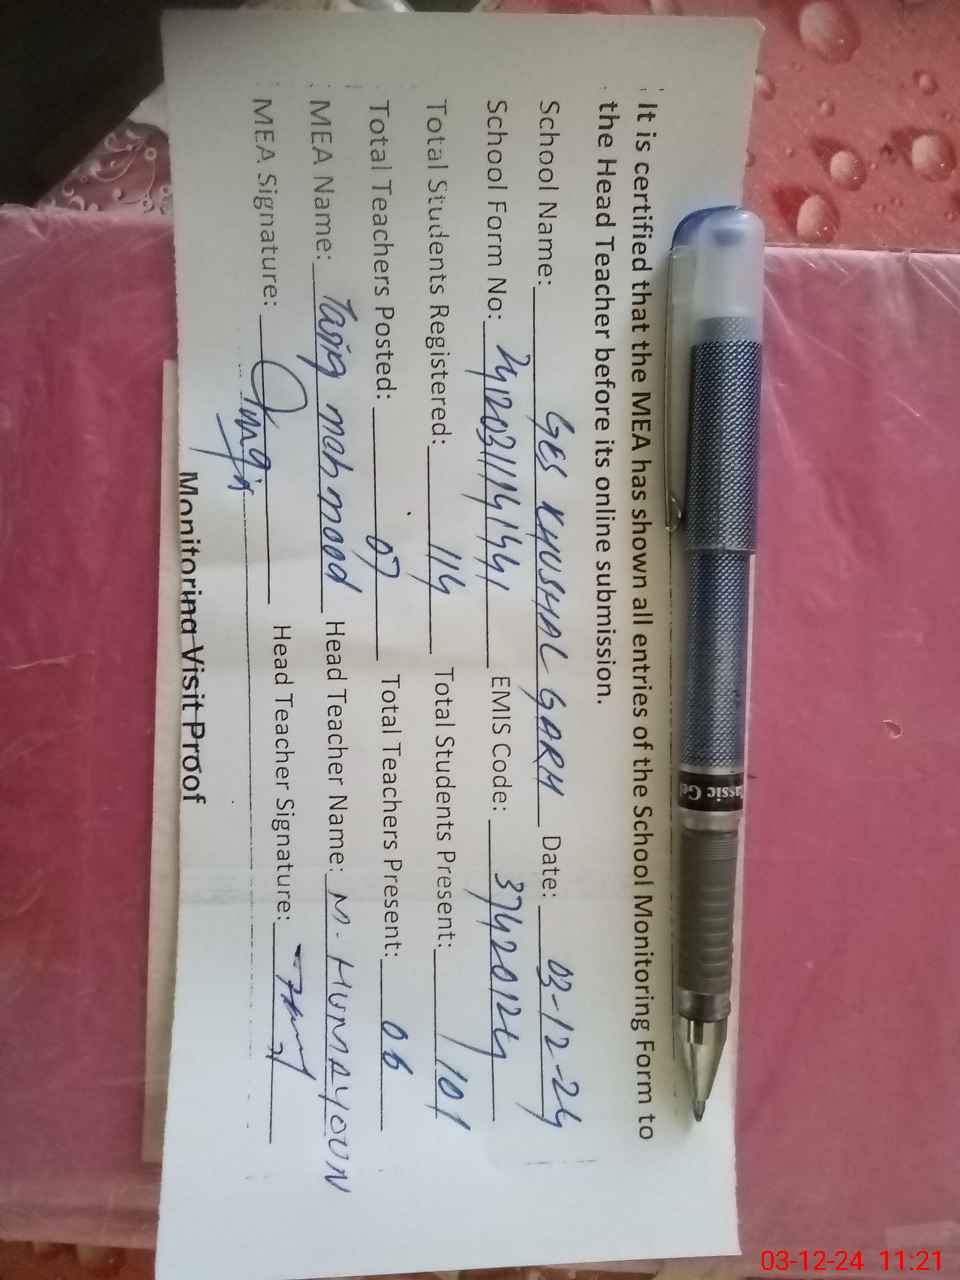 It is certified that the MEA has shown all entries of the School Monitoring Form to
the Head Teacher before its online submission.
School Name: GES KHUSHAL GARH Date: 03-12-24
School Form No: EMIS Code: 37420124
Total Students Registered: 114 Total Students Present: 101
Total Teachers Posted: 07 Total Teachers Present: 06
MEA Name: Tariq mahmood Head Teacher Name: M. HUMAYOUN
MEA Signature: Head Teacher Signature:
Monitoring Visit Proof
03-12-24 11:21